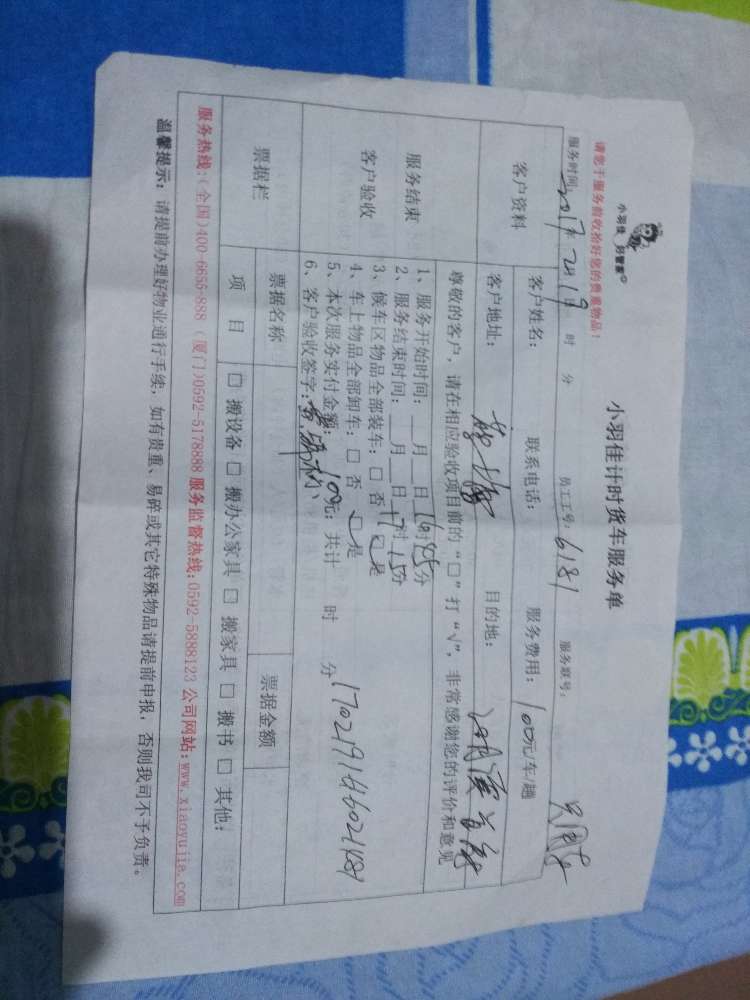 小羽佳 好管家
请您于服务前收拾好您的贵重物品！
小羽佳计时货车服务单
服务时间：2017年2月19日 时 分 员工工号：6181 服务联号：
客户资料 客户姓名： 联系电话： 服务费用：100元/车/趟
客户地址： 目的地：
服务结束
客户验收
尊敬的客户，请在相应验收项目前的“□”打“√”，非常感谢您的评价和意见
1、服务开始时间：__月__日16时 分
2、服务结束时间：__月__日17时15分
3、候车区物品全部装车：□ 否 □是
4、车上物品全部卸车：□ 否 □是
5、本次服务实付金额：100元；共计 时 分
6、客户验收签字：
票据栏 票据名称 票据金额
项 目 □ 搬设备 □ 搬办公家具 □ 搬家具 □ 搬书 □ 其他：
服务热线：(全国)400-6655-888 (厦门)0592-5178888 服务监督热线：0592-5888123 公司网站：www.xiaoyujia.com
温馨提示：请提前办理好物业通行手续，如有贵重、易碎或其它特殊物品请提前申报，否则我司不予负责。